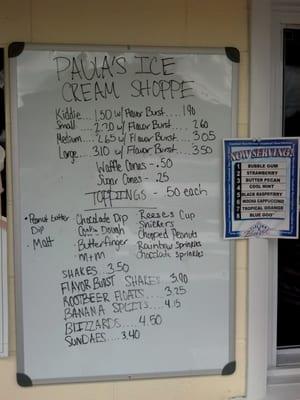 PAULA'S ICE
CREAM SHOPPE
Kiddie 1.50 w/ Flavor Burst... 1.90
Small... 2.20 w/ Flavor Burst... 2.60
Medium... 2.65 w/ Flavor Burst... 3.05
Large... 3.10 w/ Flavor Burst... 3.50
Waffle Cones - .50
Sugar Cones - .25
TOPPINGS - .50 each
Peanut butter Dip
Malt
Chocolate Dip
Cookie Dough
Butterfinger
m+m
Reese's Cup
Snickers
Chopped Peanuts
Rainbow Sprinkles
Chocolate Sprinkles
SHAKES... 3.50
FLAVOR BURST SHAKES... 3.90
ROOTBEER FLOATS... 3.25
BANANA SPLITS... 4.15
BLIZZARDS... 4.50
SUNDAES... 3.40
NOW SERVING
1 BUBBLE GUM
2 STRAWBERRY
3 BUTTER PECAN
4 COOL MINT
5 BLACK RASPBERRY
6 MOCHA CAPPUCCINO
7 TROPICAL ORANGE
8 BLUE GOO